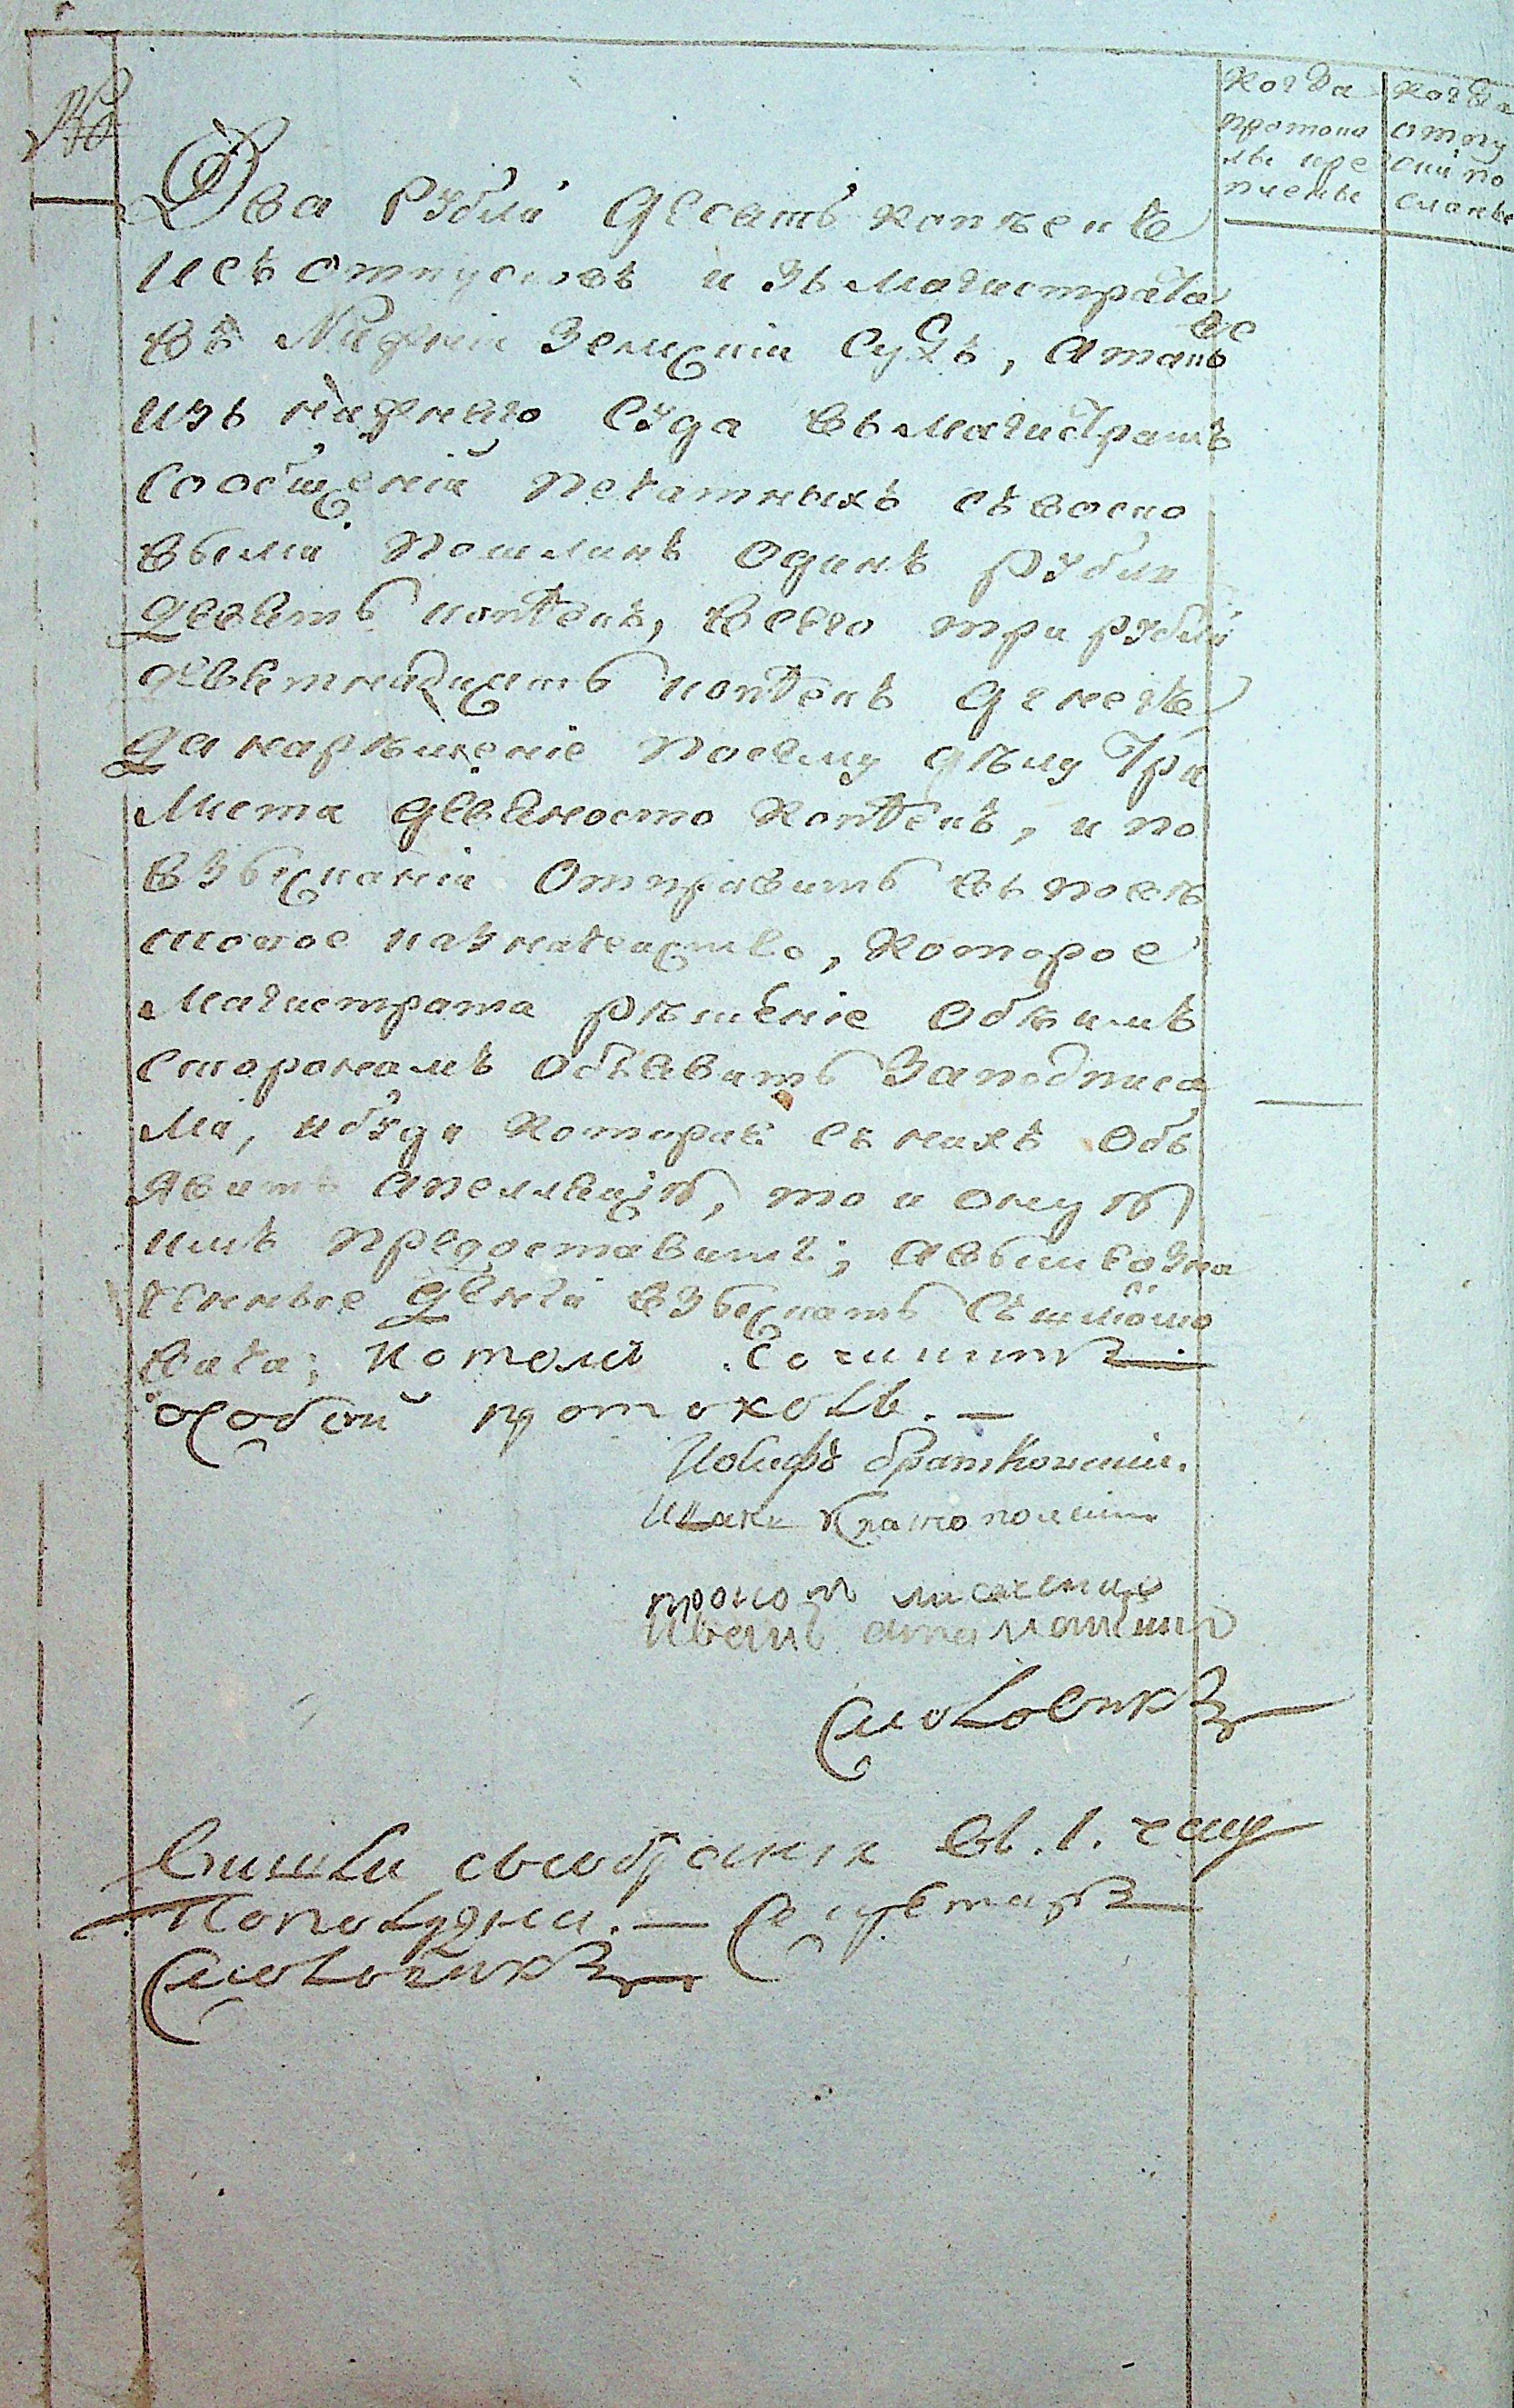 №
Когда
протоко
лъ кре
пленъ
Когда
отпу
скъ по
сланъ
Два рубли десять копѣекъ
исъ отпусковъ изъ Магистрата
въ Нижній Земскій Судъ, а такъ же
изъ нижнего Суда въ магистратъ
сообщеній печатныхъ съ воско
выми пошлинъ одинъ рубли
девять копѣекъ, всего три рубли
девѣтнадцать копѣекъ денегъ
да нарѣшеніе посему дѣлу три
листа девяносто копѣекъ, и по
взысканіи отправить въ
казначейство, которое
Магистрата рѣшеніе обѣимъ
сторонамъ объявить за подписа
ми, и буде которая съ нихъ объ
явитъ апелляцію, то и оную
имъ предоставить; а вышеозна
ченные денги взыскать съ
вача; и о томъ сочинить
особой протоколъ. —
Иосифъ
прокопъ лисаченко
Иванъ
Смоловикъ
Вишли съ собранія въ. 1. часу
Пополудни. — Секретарь
Смоловикъ